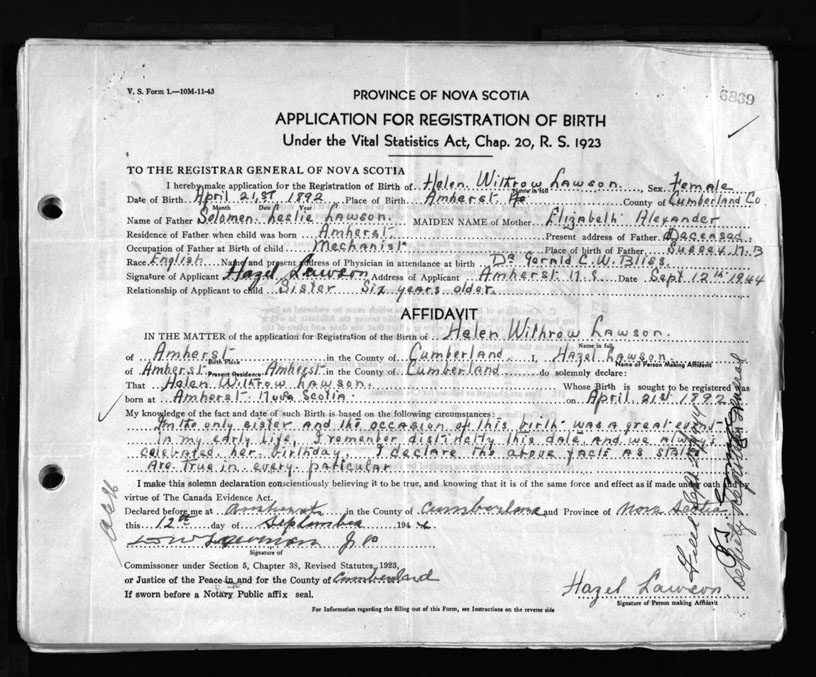 V. S. Form 1.—10M-11-43
6839
PROVINCE OF NOVA SCOTIA
APPLICATION FOR REGISTRATION OF BIRTH
Under the Vital Statistics Act, Chap. 20, R. S. 1923
TO THE REGISTRAR GENERAL OF NOVA SCOTIA
I hereby make application for the Registration of Birth of Helen Withrow Lawson, Sex Female
Name in full
Date of Birth April 21st 1892 Place of Birth Amherst County of Cumberland Co
Month Date Year
Name of Father Solomen Leslie Lawson. MAIDEN NAME of Mother Elizabeth Alexander
Residence of Father when child was born Amherst Present address of Father Deceased.
Occupation of Father at Birth of child Mechanist Place of birth of Father Sussex N.B
Race English Name and present address of Physician in attendance at birth Dr Gorald C. W. Bliss.
Signature of Applicant Hazel Lawson Address of Applicant Amherst N.S. Date Sept 12th 1944
Relationship of Applicant to child Sister Six years older.
AFFIDAVIT
IN THE MATTER of the application for Registration of the Birth of Helen Withrow Lawson.
Name in full
of Amherst in the County of Cumberland I, Hazel Lawson
Birth Place Name of Person Making Affidavit
of Amherst Amherst in the County of Cumberland do solemnly declare:
Present Residence
That Helen Withrow Lawson. Whose Birth is sought to be registered was
born at Amherst Nova Scotia on April 21st 1892
My knowledge of the fact and date of such Birth is based on the following circumstances:
Im the only sister and the occasion of this birth was a great event
in my early life, I remember distinctly this date and we always
celebrated her birthday, I declare the above facts as stated
Are True in every particular
I make this solemn declaration conscientiously believing it to be true, and knowing that it is of the same force and effect as if made under oath and by
virtue of The Canada Evidence Act.
Declared before me at Amherst in the County of Cumberland and Province of Nova Scotia
this 12th day of September 1944
J P
Signature of
Commissioner under Section 5, Chapter 38, Revised Statutes, 1923,
or Justice of the Peace in and for the County of Cumberland
If sworn before a Notary Public affix seal.
Hazel Lawson
Signature of Person making Affidavit
For Information regarding the filling out of this Form, see Instructions on the reverse side
Deputy Registrar General